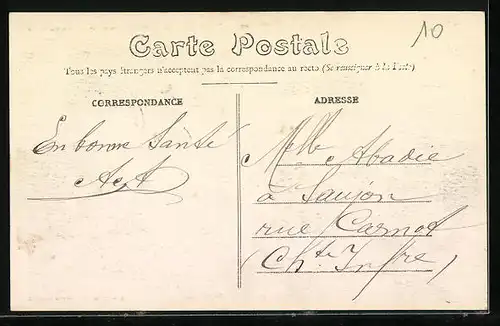 10
Carte Postale
Tous les pays étrangers n'acceptent pas la correspondance au recto (Se renseigner à la Poste)
CORRESPONDANCE
ADRESSE
En bonne Santé
Melle Abadie
à Saujon
rue Carnot
(Chte Infre)